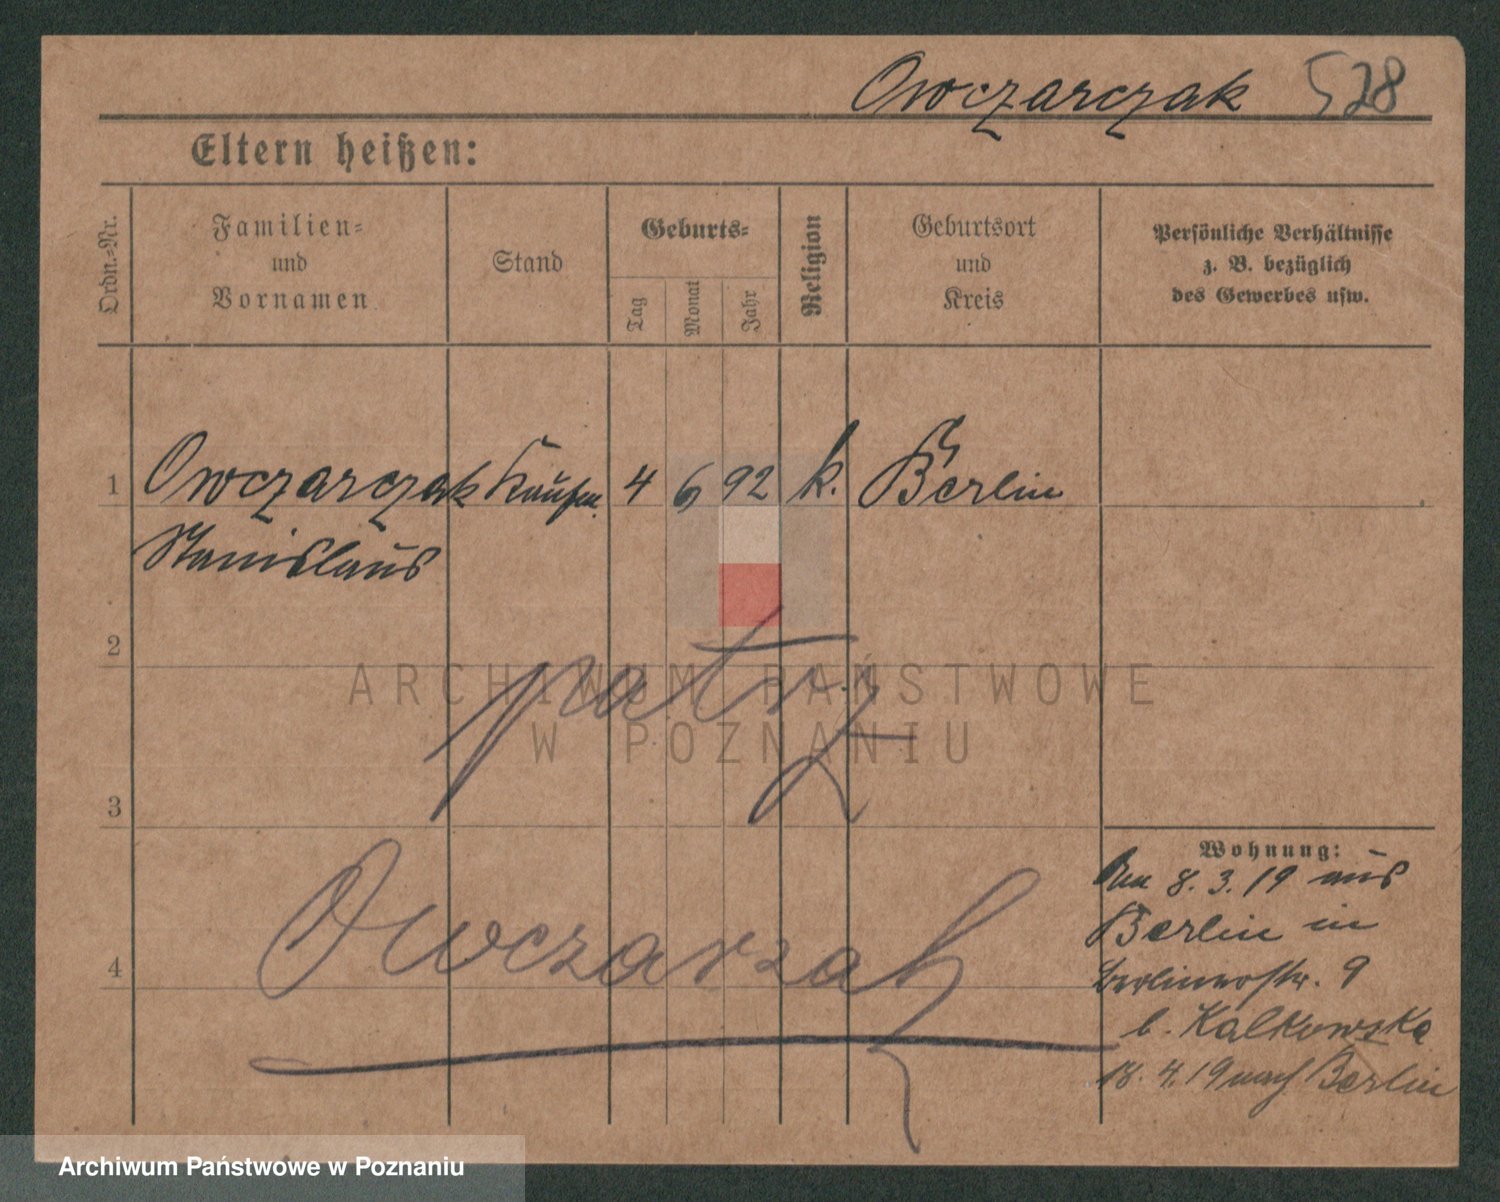 Owczarczak 528
Eltern heißen:
Ordn.-Nr.
Familien-
und
Vornamen
Stand
Geburts-
Tag
Monat
Jahr
Religion
Geburtsort
und
Kreis
Persönliche Verhältnisse
z. B. bezüglich
des Gewerbes usw.
1 Owczarczak Kaufm. 4 6 92 k. Berlin
Stanislaus
2
patrz
3
Owczarzak
4
Wohnung:
8.3.19 aus
Berlin in
Berlinerstr. 9
b. Kalkowska
18.4.19 nach Berlin
ARCHIWUM PAŃSTWOWE
W POZNANIU
Archiwum Państwowe w Poznaniu